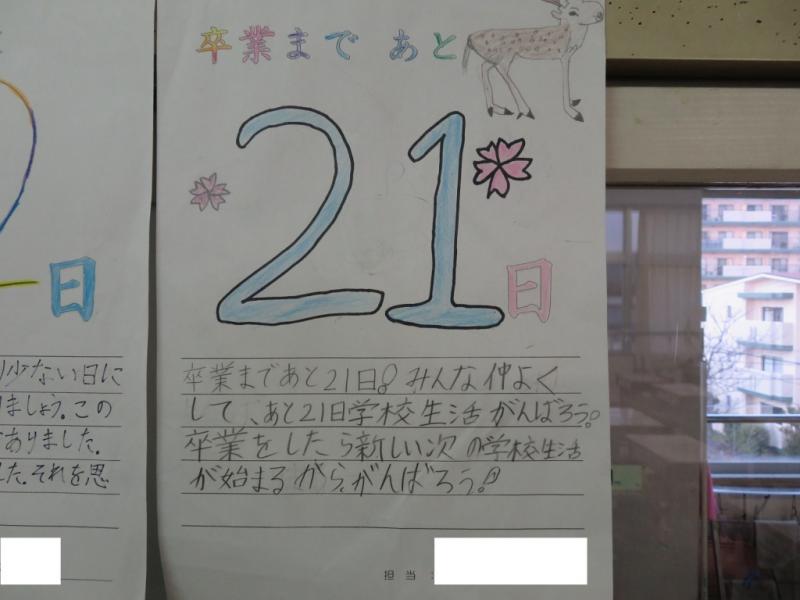 卒業まで あと
21日
卒業まであと21日!みんな仲よく
して、あと21日学校生活がんばろう。
卒業をしたら新しい次の学校生活
が始まるから、がんばろう!
担当:
日
少ない日に
ましょう。この
ありました。
た。それを思